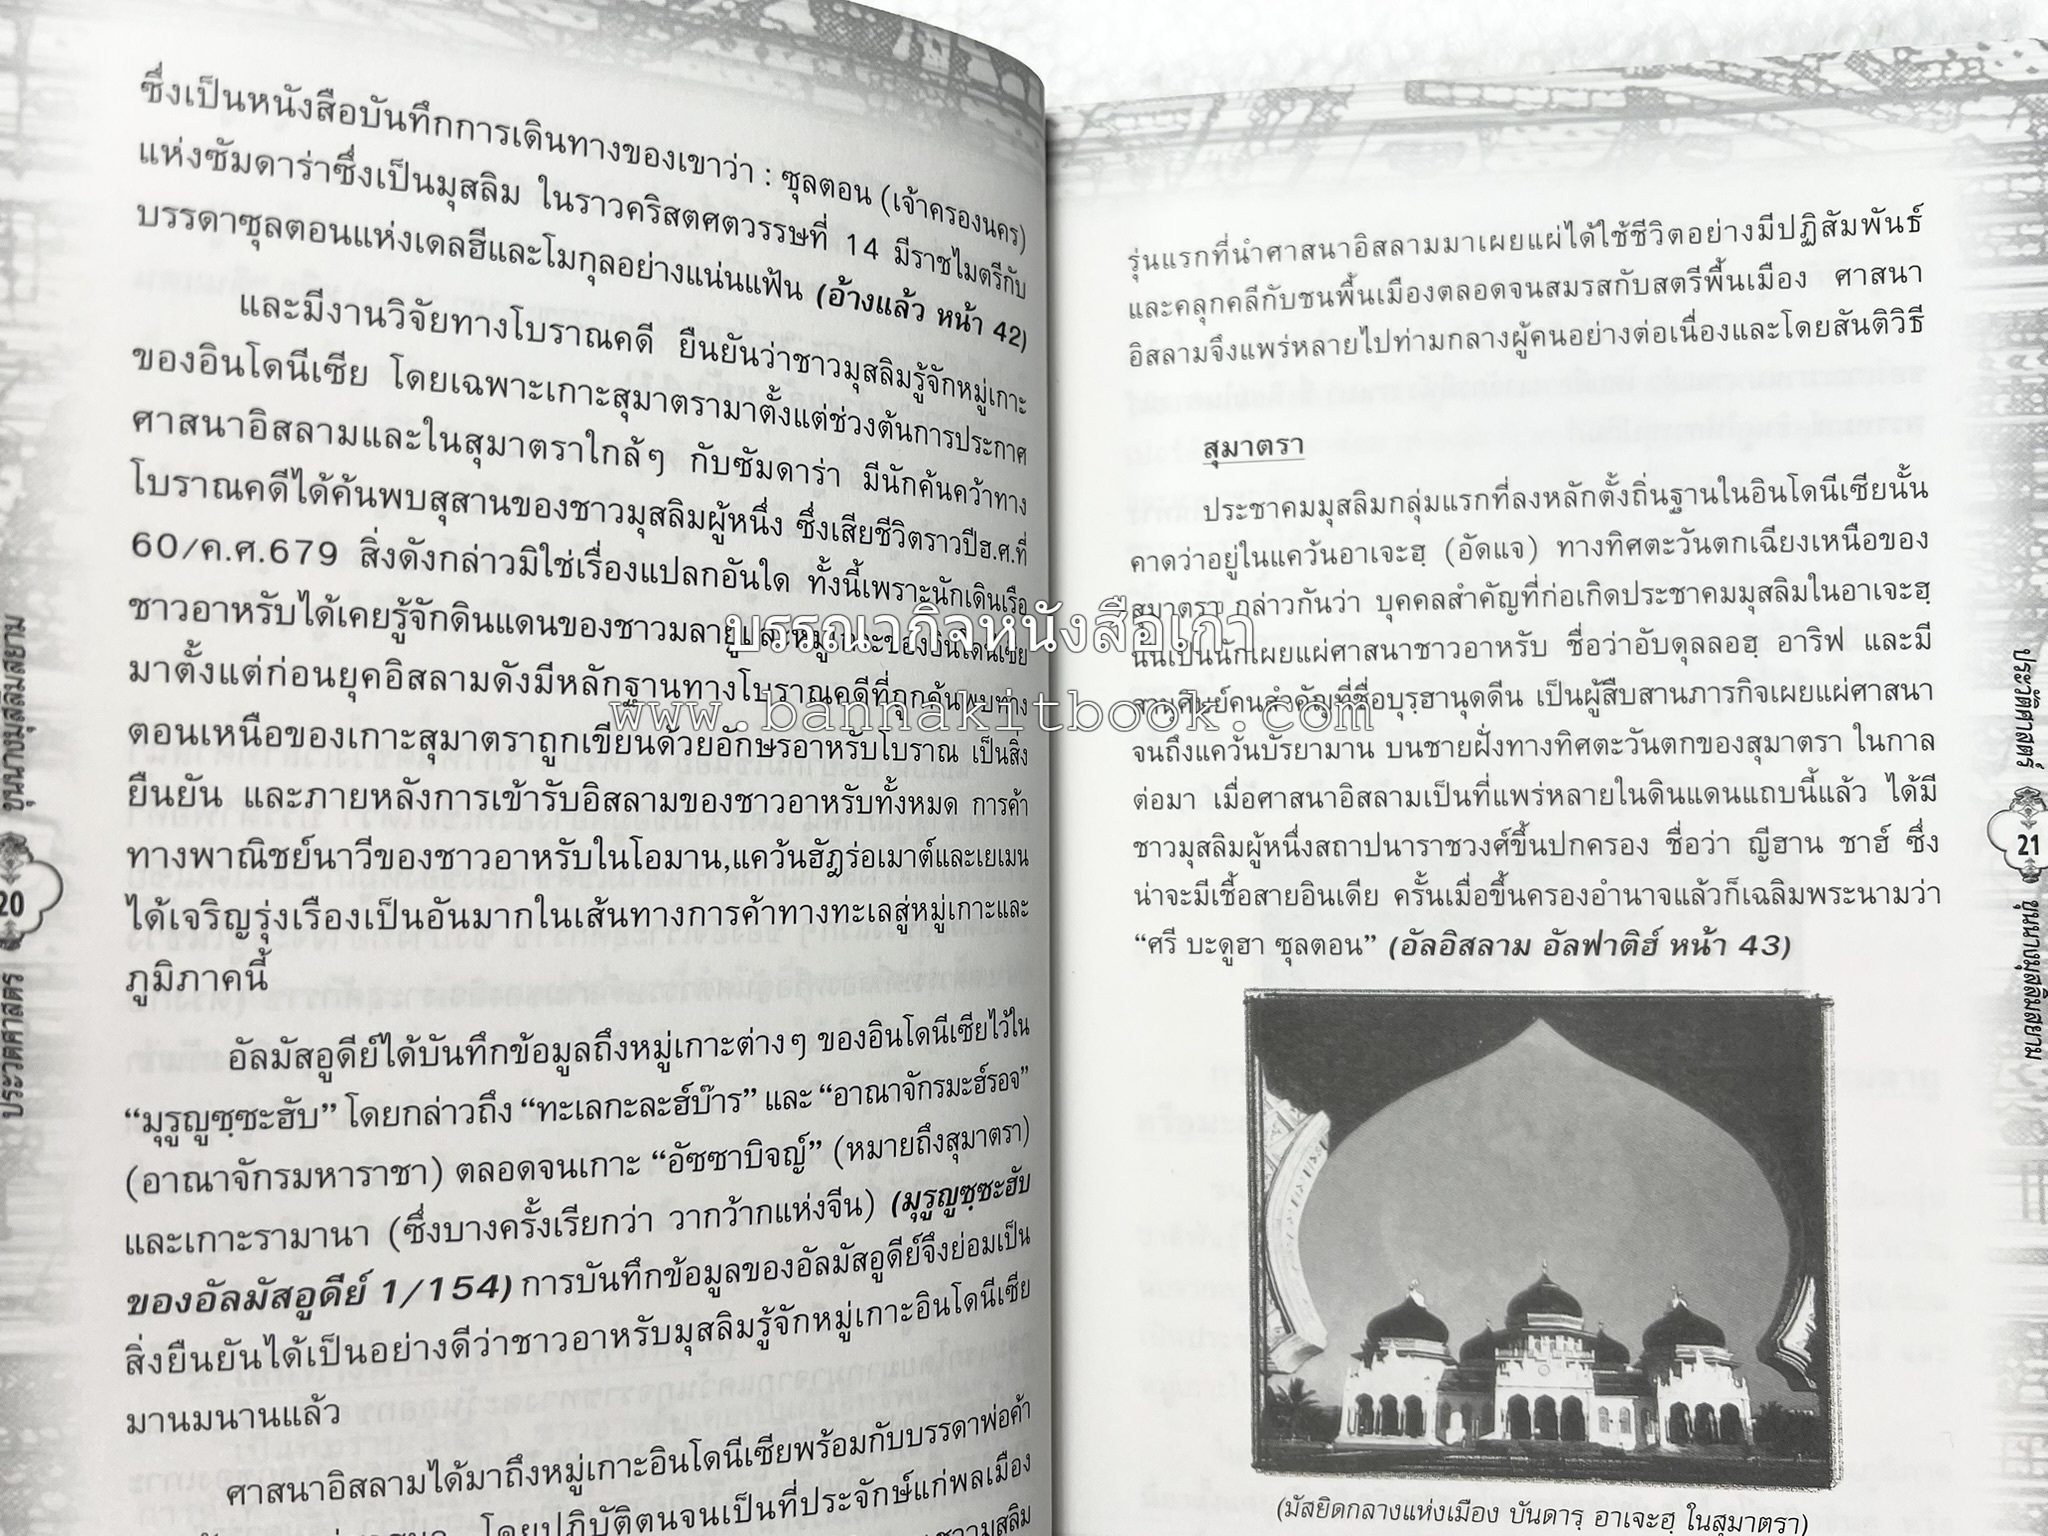 ซึ่งเป็นหนังสือบันทึกการเดินทางของเขาว่า : ซุลตอน (เจ้าครองนคร)
แห่งซัมดาร่าซึ่งเป็นมุสลิม ในราวคริสตศตวรรษที่ 14 มีราชไมตรีกับ
บรรดาซุลตอนแห่งเดลฮีและโมกุลอย่างแน่นแฟ้น (อ้างแล้ว หน้า 42)
และมีงานวิจัยทางโบราณคดี ยืนยันว่าชาวมุสลิมรู้จักหมู่เกาะ
ของอินโดนีเซีย โดยเฉพาะเกาะสุมาตรามาตั้งแต่ช่วงต้นการประกาศ
ศาสนาอิสลามและในสุมาตราใกล้ๆ กับซัมดาร่า มีนักค้นคว้าทาง
โบราณคดีได้ค้นพบสุสานของชาวมุสลิมผู้หนึ่ง ซึ่งเสียชีวิตราวปีฮ.ศ.ที่
60/ค.ศ.679 สิ่งดังกล่าวมิใช่เรื่องแปลกอันใด ทั้งนี้เพราะนักเดินเรือ
ชาวอาหรับได้เคยรู้จักดินแดนของชาวมลายูและหมู่เกาะของอินโดนีเซีย
มาตั้งแต่ก่อนยุคอิสลามดังมีหลักฐานทางโบราณคดีที่ถูกค้นพบทาง
ตอนเหนือของเกาะสุมาตราถูกเขียนด้วยอักษรอาหรับโบราณ เป็นสิ่ง
ยืนยัน และภายหลังการเข้ารับอิสลามของชาวอาหรับทั้งหมด การค้า
ทางพาณิชย์นาวีของชาวอาหรับในโอมาน,แคว้นฮัฎร่อเมาต์และเยเมน
ได้เจริญรุ่งเรืองเป็นอันมากในเส้นทางการค้าทางทะเลสู่หมู่เกาะและ
ภูมิภาคนี้
อัลมัสอูดีย์ได้บันทึกข้อมูลถึงหมู่เกาะต่างๆ ของอินโดนีเซียไว้ใน
“มุรูญูซฺซะฮับ” โดยกล่าวถึง “ทะเลกะละฮ์บ๊าร” และ “อาณาจักรมะฮ์รอจ”
(อาณาจักรมหาราชา) ตลอดจนเกาะ “อัซซาบิจญ์” (หมายถึงสุมาตรา)
และเกาะรามานา (ซึ่งบางครั้งเรียกว่า วากว้ากแห่งจีน) (มุรูญูซฺซะฮับ
ของอัลมัสอูดีย์ 1/154) การบันทึกข้อมูลของอัลมัสอูดีย์จึงย่อมเป็น
สิ่งยืนยันได้เป็นอย่างดีว่าชาวอาหรับมุสลิมรู้จักหมู่เกาะอินโดนีเซีย
มานมนานแล้ว
ศาสนาอิสลามได้มาถึงหมู่เกาะอินโดนีเซียพร้อมกับบรรดาพ่อค้า
โดยปฏิบัติตนจนเป็นที่ประจักษ์แก่พลเมือง
ขุนนางมุสลิมสยาม
20
ประวัติศาสตร์
รุ่นแรกที่นำศาสนาอิสลามมาเผยแผ่ได้ใช้ชีวิตอย่างมีปฏิสัมพันธ์
และคลุกคลีกับชนพื้นเมืองตลอดจนสมรสกับสตรีพื้นเมือง ศาสนา
อิสลามจึงแพร่หลายไปท่ามกลางผู้คนอย่างต่อเนื่องและโดยสันติวิธี
สุมาตรา
ประชาคมมุสลิมกลุ่มแรกที่ลงหลักตั้งถิ่นฐานในอินโดนีเซียนั้น
คาดว่าอยู่ในแคว้นอาเจะฮฺ (อัดแจ) ทางทิศตะวันตกเฉียงเหนือของ
สุมาตรา กล่าวกันว่า บุคคลสำคัญที่ก่อเกิดประชาคมมุสลิมในอาเจะฮฺ
นั้นเป็นนักเผยแผ่ศาสนาชาวอาหรับ ชื่อว่าอับดุลลอฮฺ อาริฟ และมี
สานุศิษย์คนสำคัญที่ชื่อบุรฺฮานุดดีน เป็นผู้สืบสานภารกิจเผยแผ่ศาสนา
จนถึงแคว้นบัรยามาน บนชายฝั่งทางทิศตะวันตกของสุมาตรา ในกาล
ต่อมา เมื่อศาสนาอิสลามเป็นที่แพร่หลายในดินแดนแถบนี้แล้ว ได้มี
ชาวมุสลิมผู้หนึ่งสถาปนาราชวงศ์ขึ้นปกครอง ชื่อว่า ญีฮาน ชาฮ์ ซึ่ง
น่าจะมีเชื้อสายอินเดีย ครั้นเมื่อขึ้นครองอำนาจแล้วก็เฉลิมพระนามว่า
“ศรี บะดูฮา ซุลตอน” (อัลอิสลาม อัลฟาติฮ์ หน้า 43)
(มัสยิดกลางแห่งเมือง บันดารฺ อาเจะฮฺ ในสุมาตรา)
ประวัติศาสตร์
21
ขุนนางมุสลิมสยาม
บรรณากิจหนังสือเก่า
www.bannakitbook.com